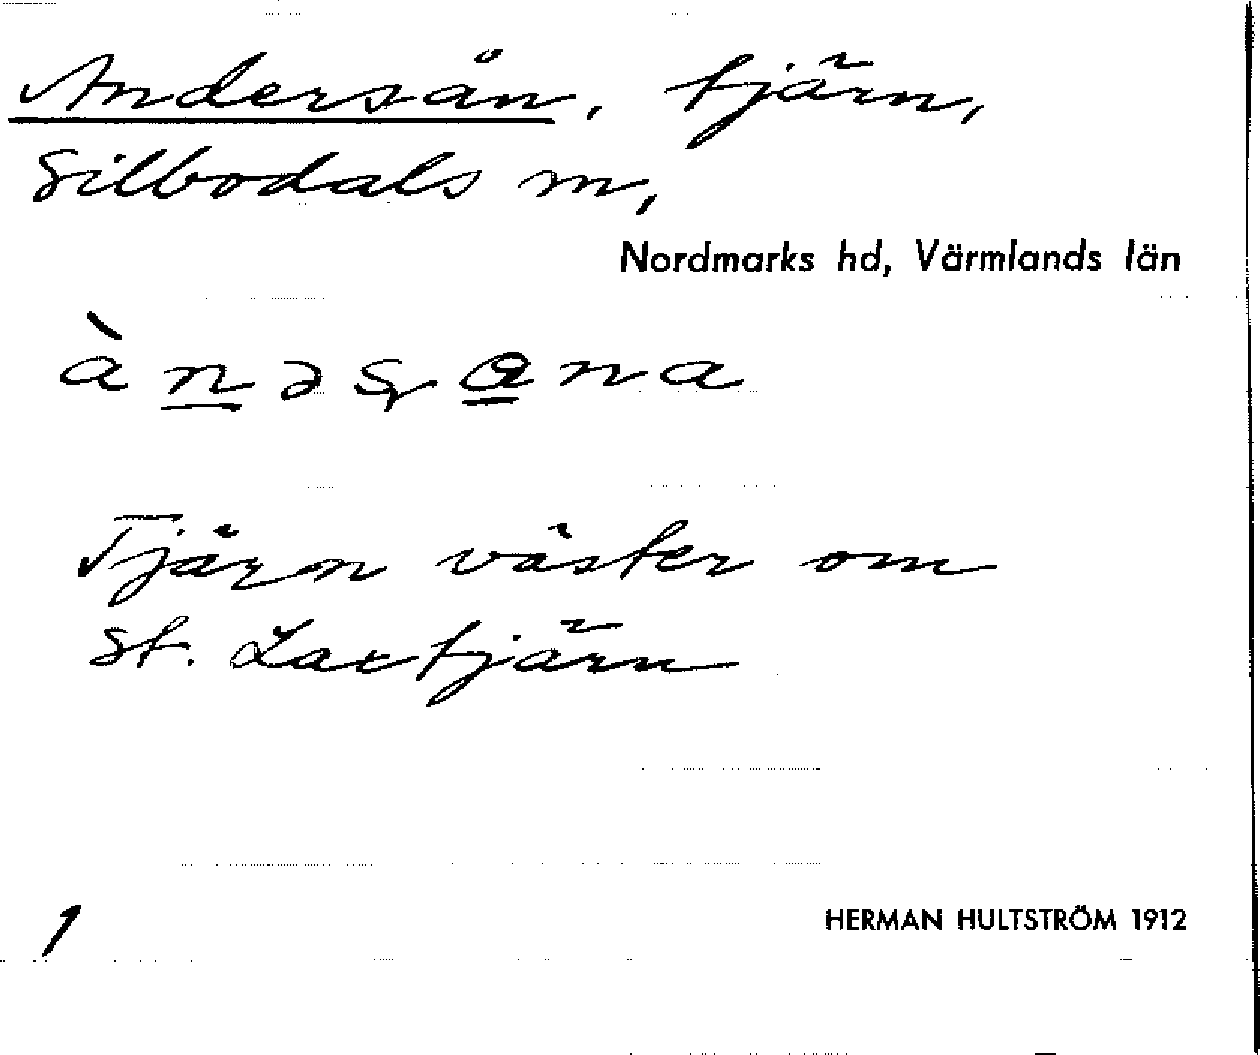 Andersån, tjärn,
Silbodals sn,
Nordmarks hd, Värmlands län
Tjärn väster om
St. Laxtjärn
1
HERMAN HULTSTRÖM 1912